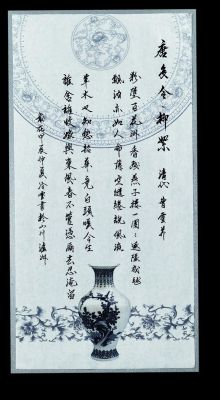 唐多令·柳絮 清代 曹雪芹
粉墮百花洲香殘燕子樓一團團逐隊成毬
飄泊亦如人命薄空繾綣說風流
草木也知愁韶華竟白頭嘆今生
誰舍誰收嫁與東風春不管憑爾去忍淹留
甲辰仲夏 書於山